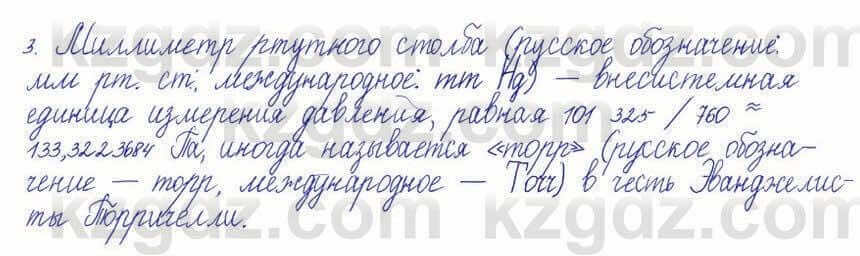 3. Миллиметр ртутного столба (русское обозначение:
мм рт. ст; международное: mm Hg) — внесистемная
единица измерения давления, равная 101 325 / 760 ≈
133,3223684 Па, иногда называется «торр» (русское обозна-
чение — торр, международное — Torr) в честь Эванджелис-
ты Торричелли.
kzgdz.com